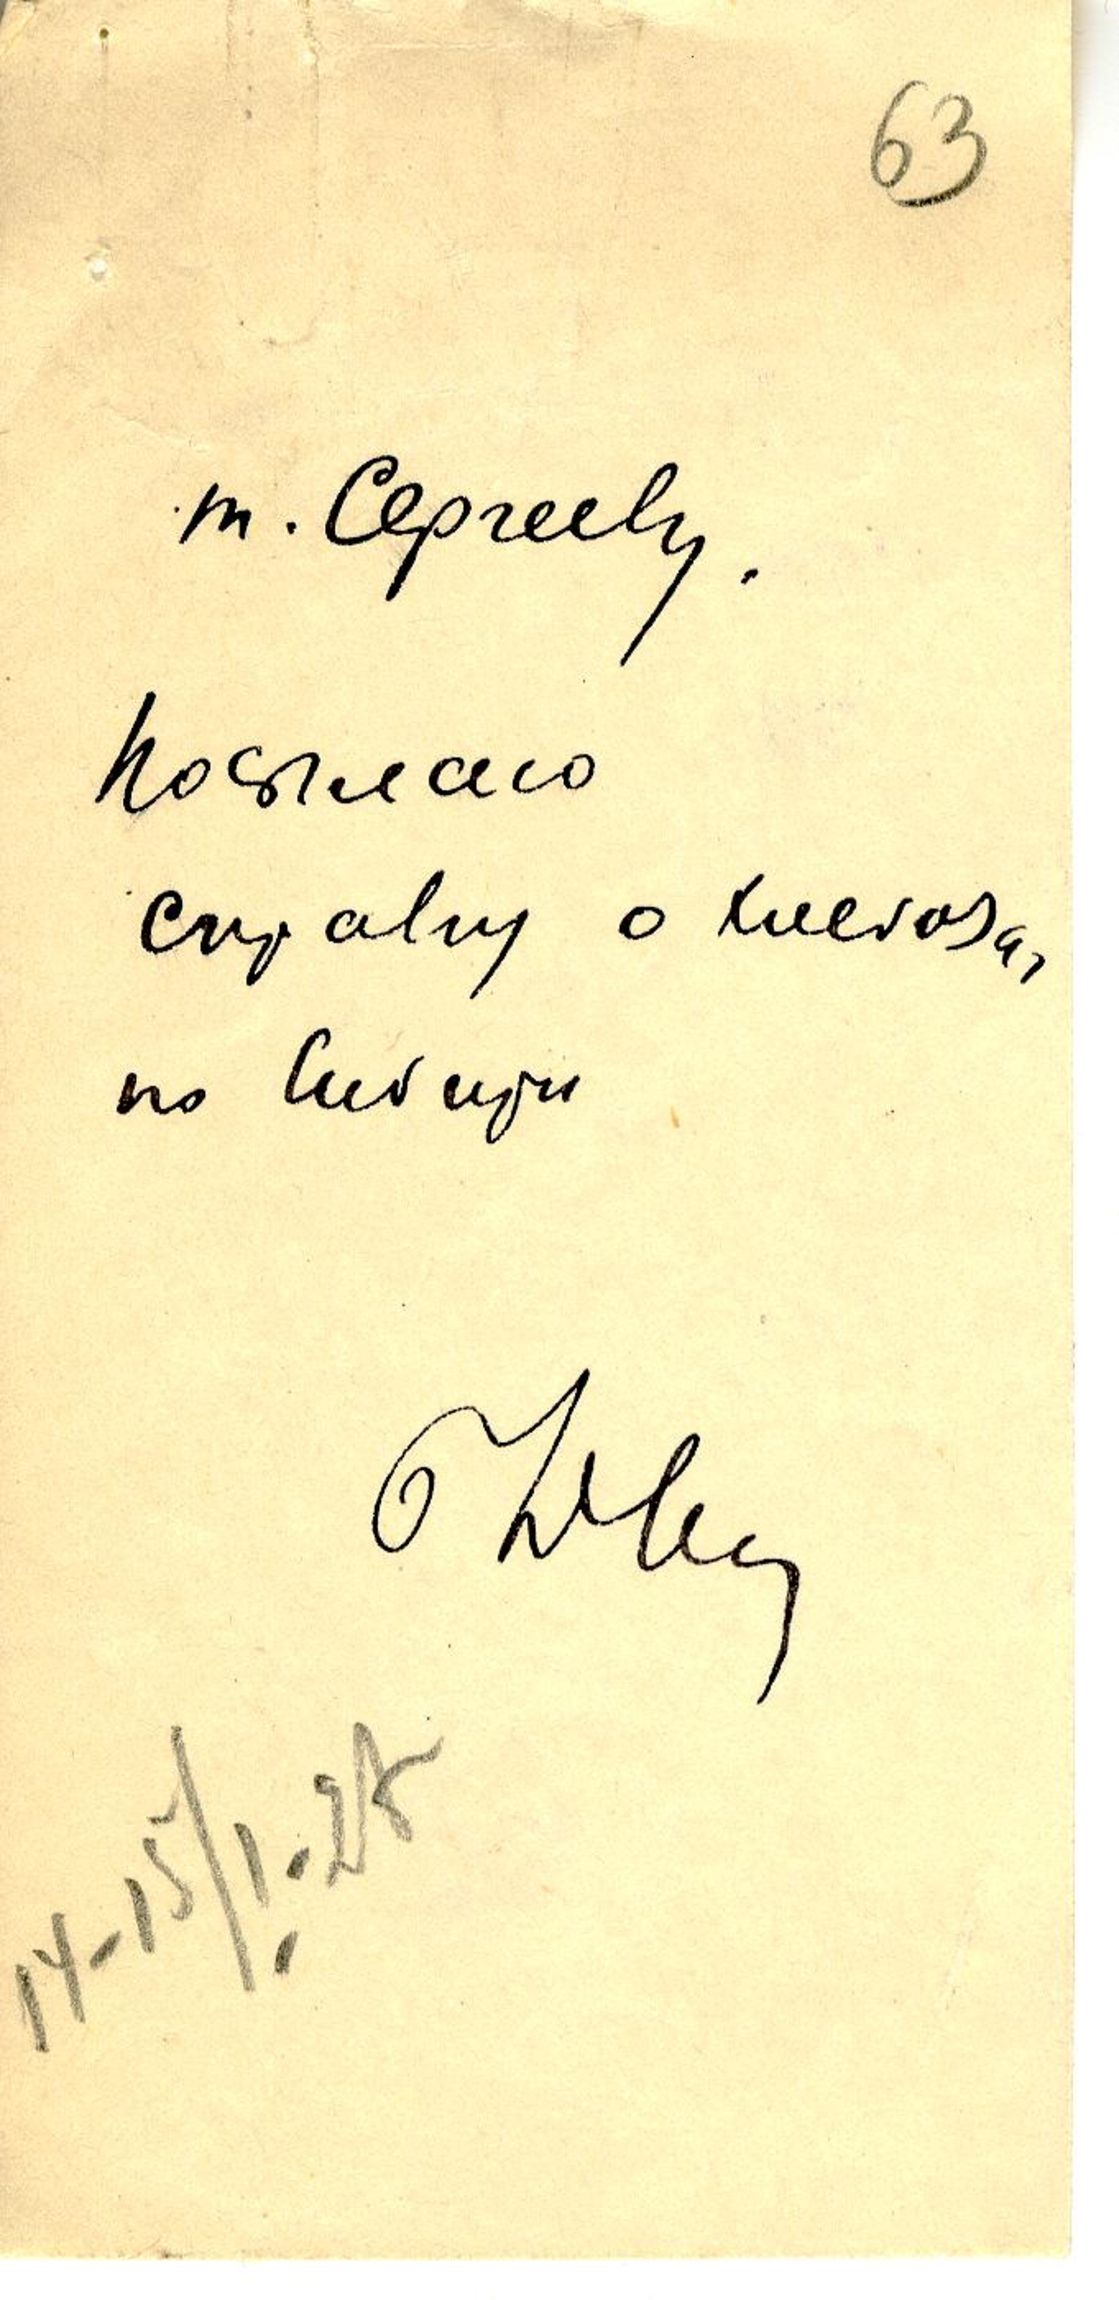 63
т. Сергееву.
Посылаю
справку о хлебоза,
по Сибири
14-15/I.28